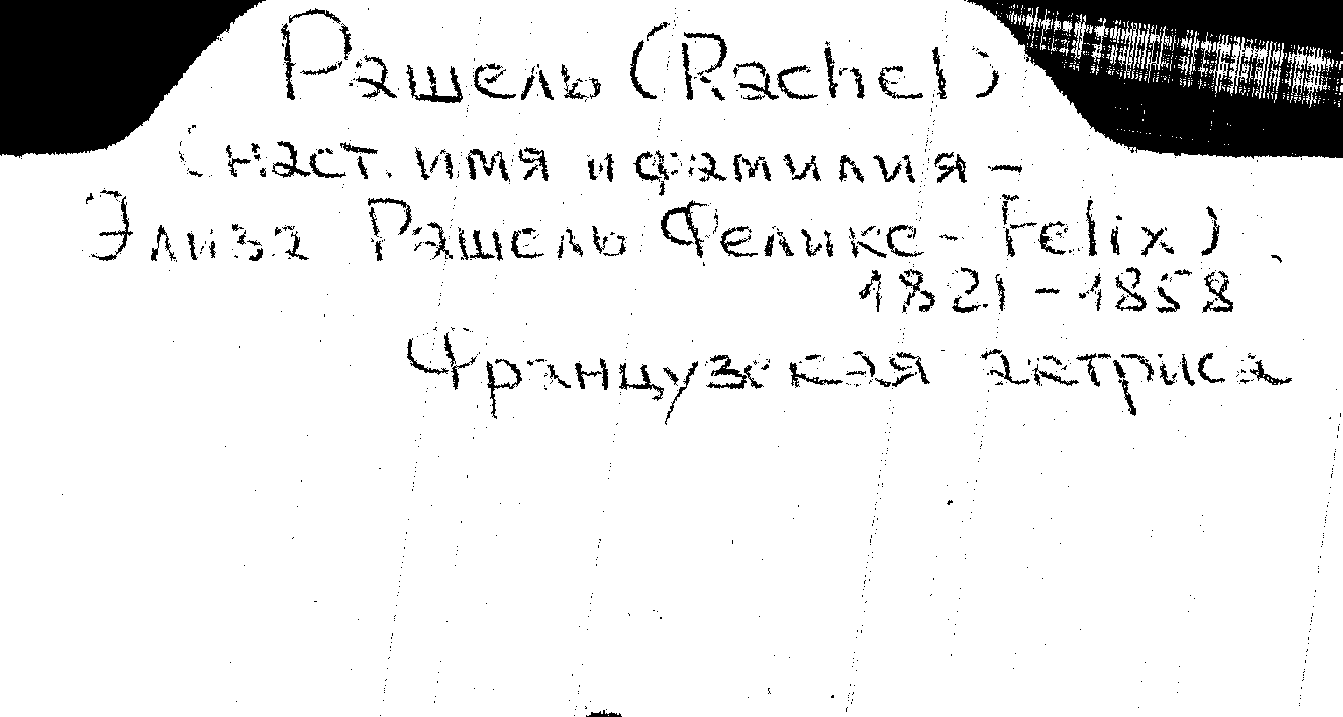 Рашель (Rachel)
(наст. имя и фамилия –
Элиза Рашель Феликс - Felix)
1821 – 1858
Французская актриса